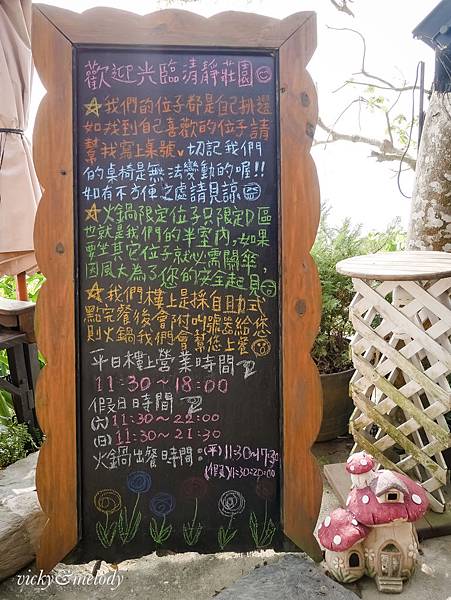 歡迎光臨清靜莊園
☆我們的位子都是自己挑選
如找到自己喜歡的位子請
幫我寫上桌號♥切記我們
的桌椅是無法變動的喔!!
如有不方便之處請見諒
☆火鍋限定位子只限定D區
也就是我們的半室內,如果
要坐其它位子就必需關傘,
因風大為了您的安全起見
☆我們樓上是採自助式
點完餐後會附叫號器給您
則火鍋我們會幫您上餐
平日樓上營業時間
11:30~18:00
假日時間
(六)11:30~22:00
(日)11:30~21:30
火鍋出餐時間:(平)11:30~17:30
(假)11:30~20:00
vicky&melody